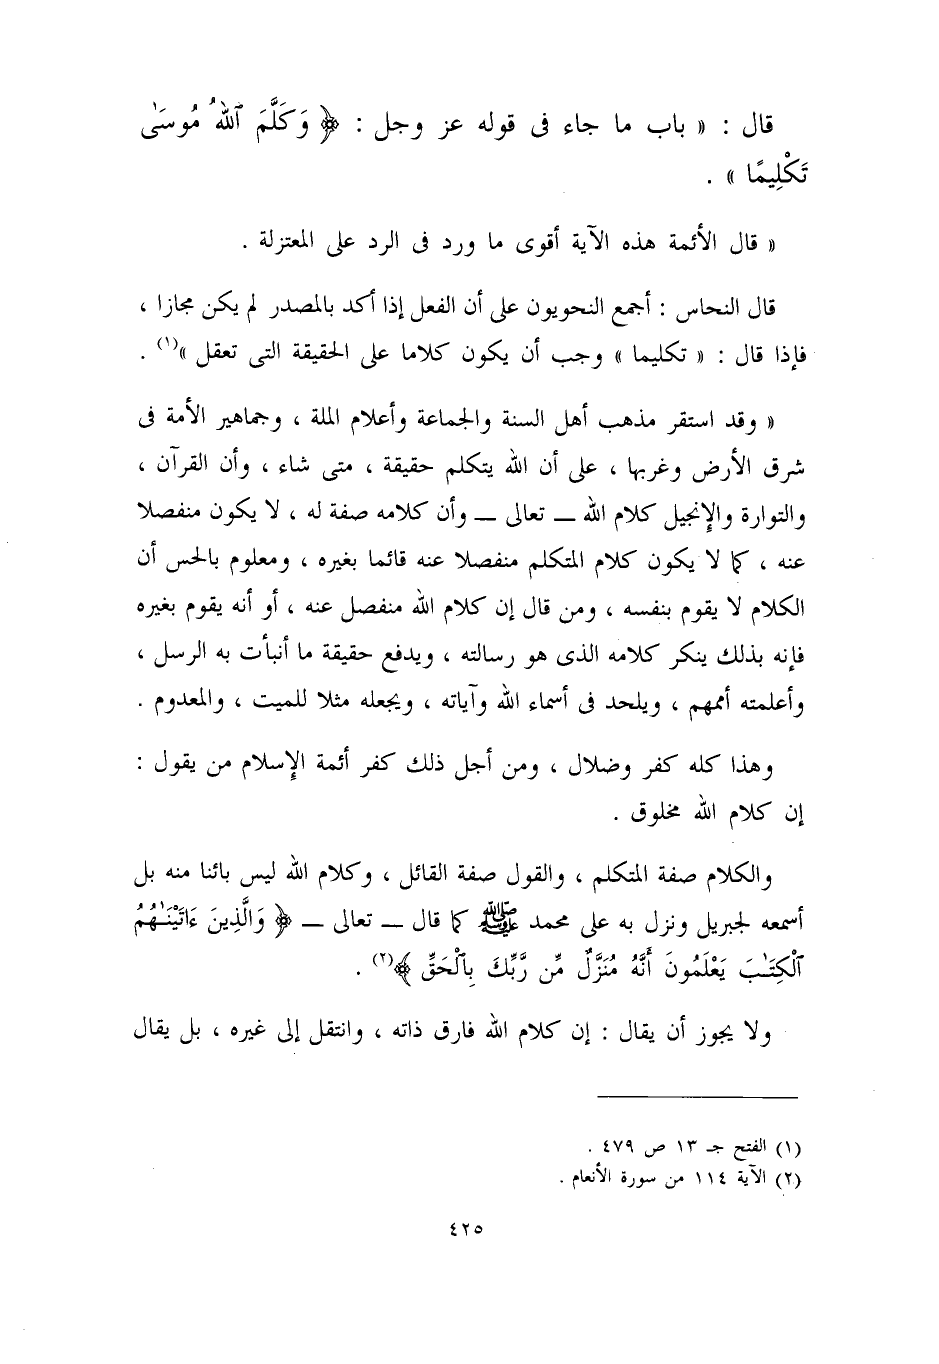 قال : « باب ما جاء فى قوله عز وجل : ﴿ وَكَلَّمَ ٱللَّهُ مُوسَىٰ
تَكْلِيمًا » .
« قال الأئمة هذه الآية أقوى ما ورد فى الرد على المعتزلة .
قال النحاس : أجمع النحويون على أن الفعل إذا أكد بالمصدر لم يكن مجازا ،
فإذا قال : « تكليما » وجب أن يكون كلاما على الحقيقة التى تعقل »(١) .
« وقد استقر مذهب أهل السنة والجماعة وأعلام الملة ، وجماهير الأمة فى
شرق الأرض وغربها ، على أن الله يتكلم حقيقة ، متى شاء ، وأن القرآن ،
والتوارة والإنجيل كلام الله ــ تعالى ــ وأن كلامه صفة له ، لا يكون منفصلا
عنه ، كما لا يكون كلام المتكلم منفصلا عنه قائما بغيره ، ومعلوم بالحس أن
الكلام لا يقوم بنفسه ، ومن قال إن كلام الله منفصل عنه ، أو أنه يقوم بغيره
فإنه بذلك ينكر كلامه الذى هو رسالته ، ويدفع حقيقة ما أنبأت به الرسل ،
وأعلمته أممهم ، ويلحد فى أسماء الله وآياته ، ويجعله مثلا للميت ، والمعدوم .
وهذا كله كفر وضلال ، ومن أجل ذلك كفر أئمة الإسلام من يقول :
إن كلام الله مخلوق .
والكلام صفة المتكلم ، والقول صفة القائل ، وكلام الله ليس بائنا منه بل
أسمعه لجبريل ونزل به على محمد ﷺ كما قال ــ تعالى ــ ﴿ وَالَّذِينَ ءَاتَيْنَٰهُمُ
ٱلْكِتَٰبَ يَعْلَمُونَ أَنَّهُ مُنَزَّلٌ مِّن رَّبِّكَ بِٱلْحَقِّ ﴾(٢) .
ولا يجوز أن يقال : إن كلام الله فارق ذاته ، وانتقل إلى غيره ، بل يقال
(١) الفتح جـ ١٣ ص ٤٧٩ .
(٢) الآية ١١٤ من سورة الأنعام .
٤٢٥